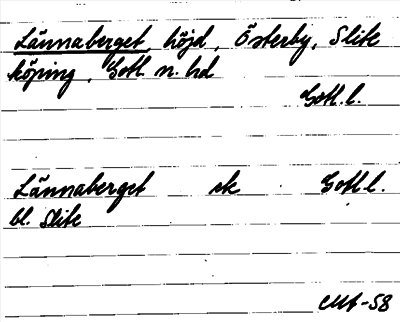 Lännaberget, höjd, Österby, Slite
köping, Gotl. n. hd
Gotl. l.
Lännaberget ek Gotl. l.
bl. Slite
CMt-58